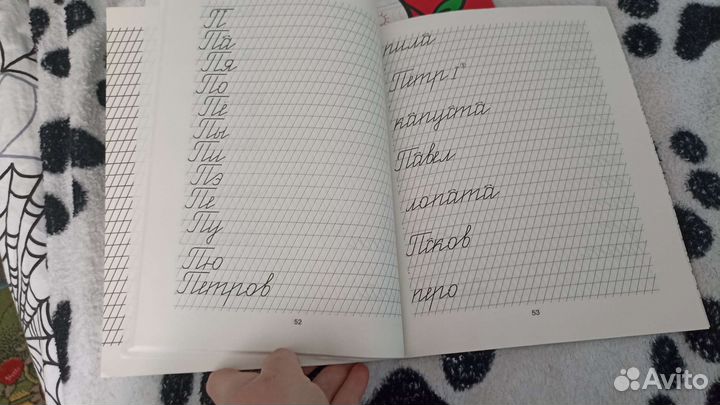 П
Па
Пя
По
Пе
Пы
Пи
Пэ
Пе
Пу
Пю
Петров
52
пила
Петр I
капуста
Павел
лопата
Пков
перо
53
Avito